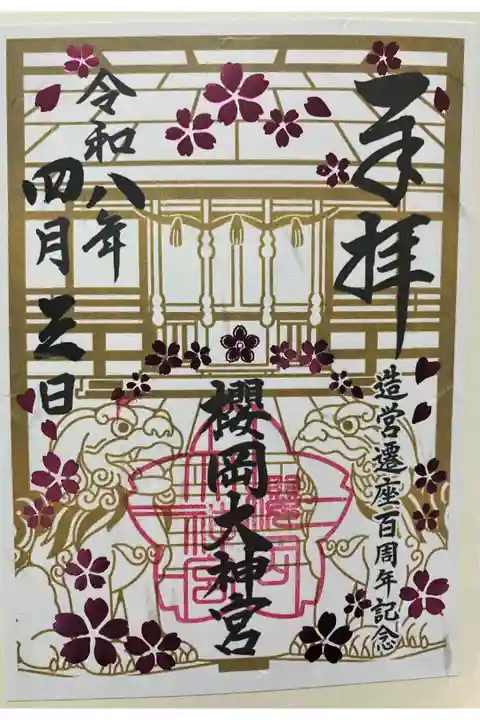 奉拝
造営遷座百周年記念
櫻岡大神宮
令和八年
四月三日